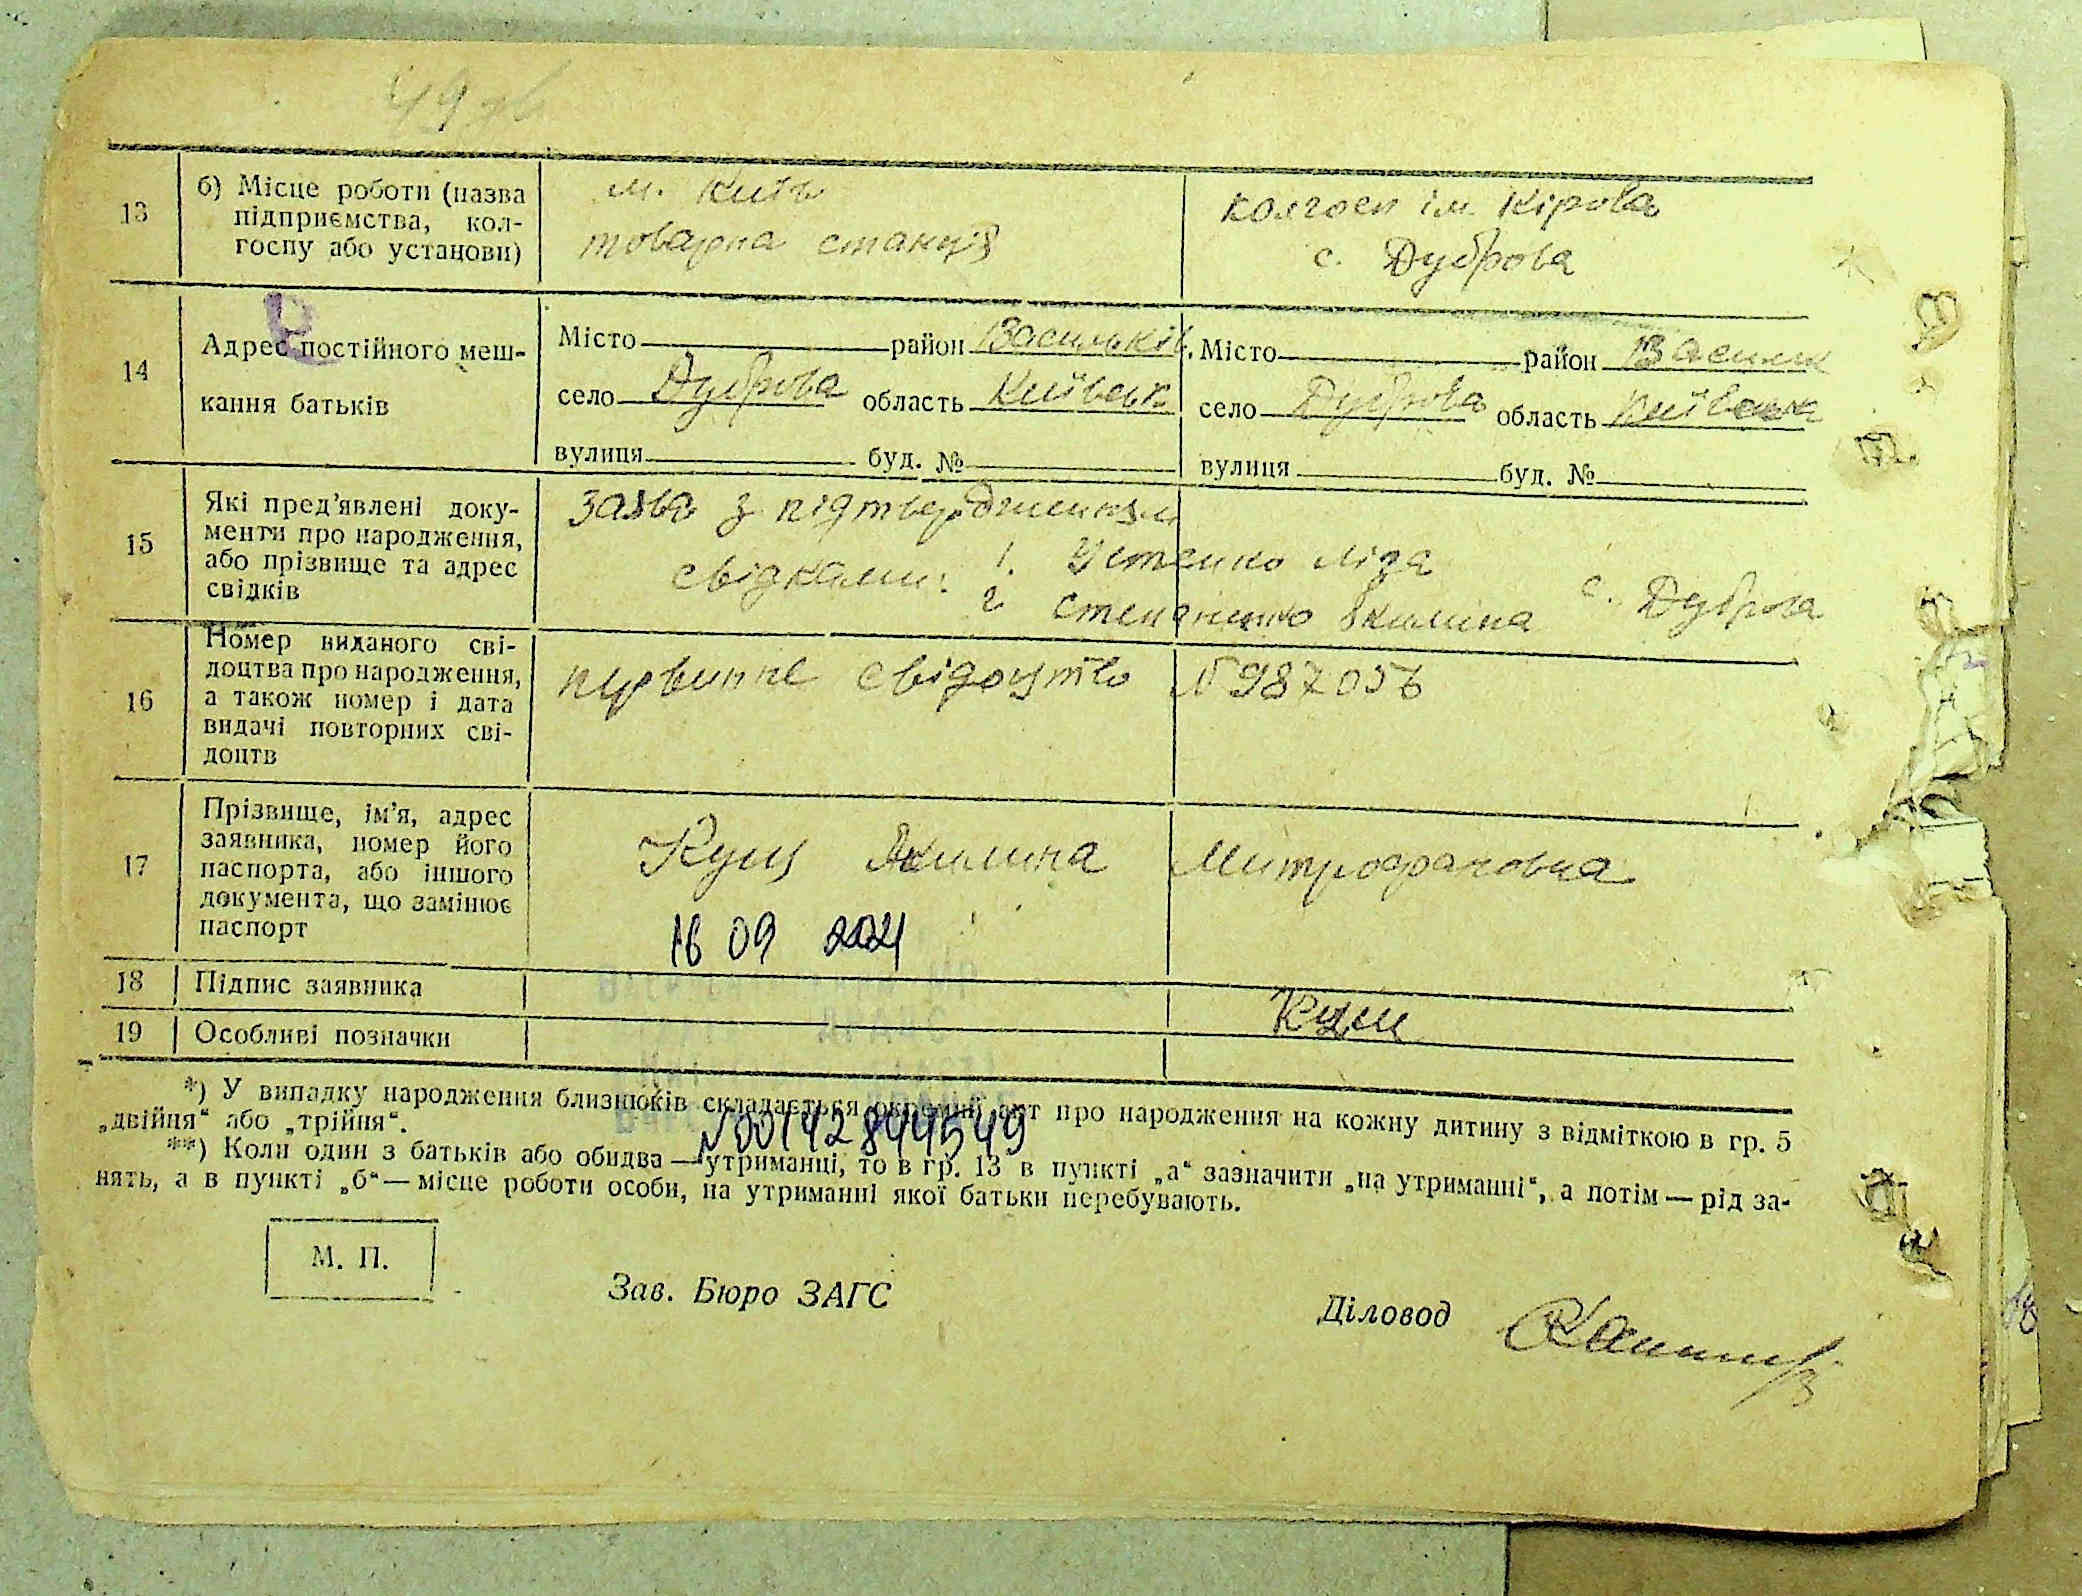 49 зв
13
б) Місце роботи (назва
підприємства, кол-
госпу або установи)
м. Київ
товарна станція
колгосп ім. Кірова
с. Дуброва
14
Адрес постійного меш-
кання батьків
Місто район Васильків.
село Дуброва область Київськ
вулиця буд. №
Місто район Васильк
село Дуброва область Київськ
вулиця буд. №
15
Які пред'явлені доку-
менти про народження,
або прізвище та адрес
свідків
заява з підтвердженням
свідками: 1. Устенко Ліза
2 Степаненко Якилина с. Дуброва
16
Номер виданого сві-
доцтва про народження,
а також номер і дата
видачі повторних сві-
доцтв
первинне свідоцтво №987056
17
Прізвище, ім'я, адрес
заявника, номер його
паспорта, або іншого
документа, що замінює
паспорт
Кущ Якилина Митрофановна
16 09 2021
18 Підпис заявника
Кущ
19 Особливі позначки
*) У випадку народження близнюків складається окремий акт про народження на кожну дитину з відміткою в гр. 5
„двійня“ або „трійня“.
№00142844549
**) Коли один з батьків або обидва — утриманці, то в гр. 13 в пункті „а“ зазначити „на утриманні“, а потім — рід за-
нять, а в пункті „б“ — місце роботи особи, на утриманні якої батьки перебувають.
М. П.
Зав. Бюро ЗАГС
Діловод